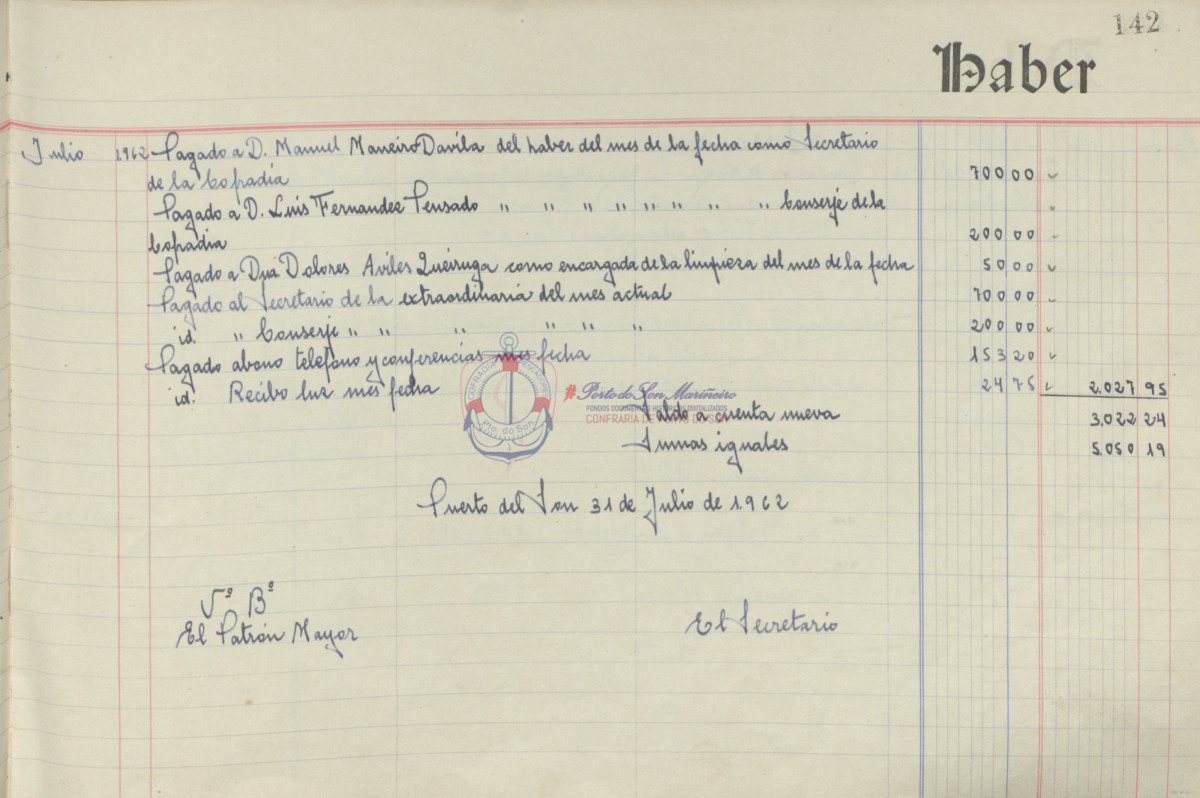 142
Haber
Julio 1962 Pagado a D. Manuel Maneiro Davila del haber del mes de la fecha como Secretario
de la Cofradia 700 00
Pagado a D. Luis Fernandez Pensado " " " " " " " " Conserje de la
Cofradia 200 00
Pagado a Dña Dolores Aviles Queiruga como encargada de la limpieza del mes de la fecha 50 00
Pagado al Secretario de la extraordinaria del mes actual 700 00
id. " Conserje " " " " " " 200 00
Pagado abono telefono y conferencias mes fecha 153 20
id. Recibo luz mes fecha 24 75 2.027 95
Saldo a cuenta nueva 3.022 24
Sumas iguales 5.050 19
Puerto del Son 31 de Julio de 1.962
Vº Bº
El Patrón Mayor
El Secretario
COFRADIA PESCADORES
Pto. do Son
#Porto do Son Mariñeiro
FONDOS DOCUMENTAIS HISTÓRICOS DIXITALIZADOS
CONFRARÍA DE PORTO DO SON